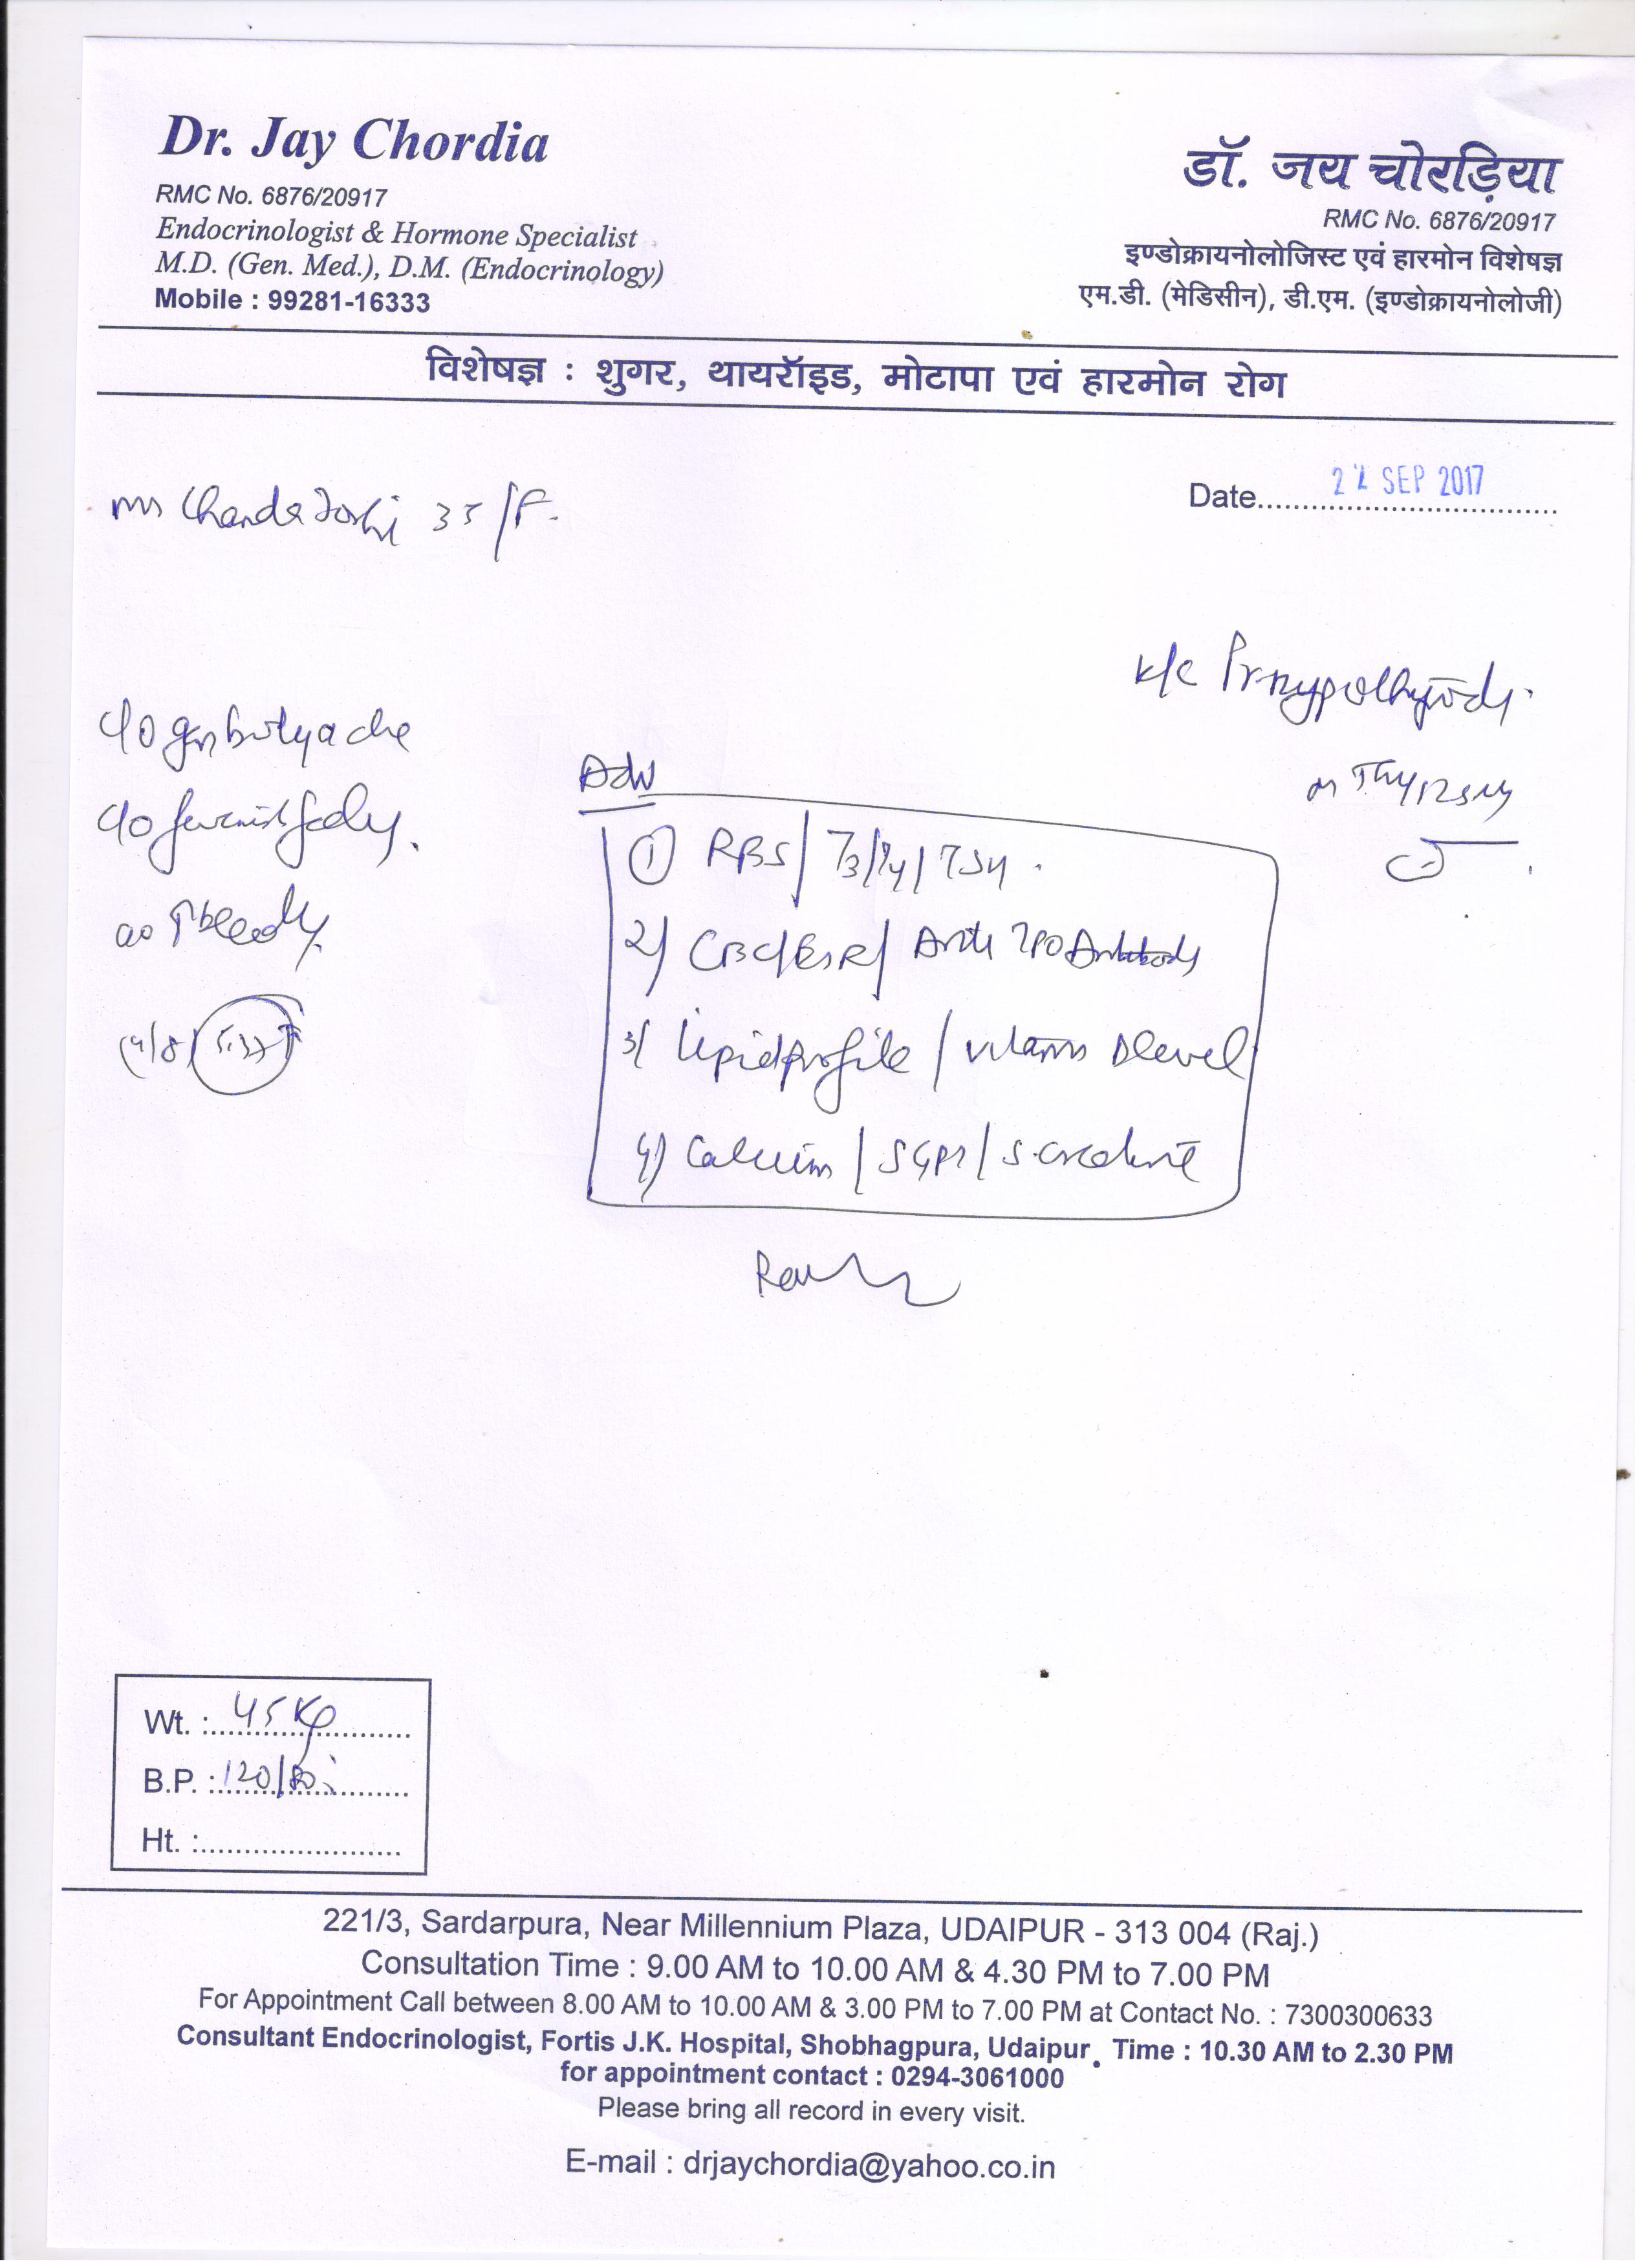 Dr. Jay Chordia
RMC No. 6876/20917
Endocrinologist & Hormone Specialist
M.D. (Gen. Med.), D.M. (Endocrinology)
Mobile : 99281-16333
डॉ. जय चोरड़िया
RMC No. 6876/20917
इण्डोक्रायनोलोजिस्ट एवं हारमोन विशेषज्ञ
एम.डी. (मेडिसीन), डी.एम. (इण्डोक्रायनोलोजी)
विशेषज्ञ : शुगर, थायरॉइड, मोटापा एवं हारमोन रोग
Date 22 SEP 2017
Chanda Joshi 35/F.
K/C
c/o gen bodyache
c/o
Adv
① RBS/T3/T4/TSH
2) CBC/ESR/ Anti TPO Antibody
3) Lipid profile / Vitamin D level
4) Calcium / SGPT / S. creatinine
Wt. : 45 Kg
B.P. : 120/80
Ht. :
221/3, Sardarpura, Near Millennium Plaza, UDAIPUR - 313 004 (Raj.)
Consultation Time : 9.00 AM to 10.00 AM & 4.30 PM to 7.00 PM
For Appointment Call between 8.00 AM to 10.00 AM & 3.00 PM to 7.00 PM at Contact No. : 7300300633
Consultant Endocrinologist, Fortis J.K. Hospital, Shobhagpura, Udaipur. Time : 10.30 AM to 2.30 PM
for appointment contact : 0294-3061000
Please bring all record in every visit.
E-mail : drjaychordia@yahoo.co.in